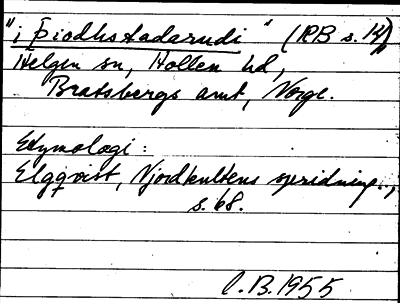 "i Þiodhstadarudi" (RB s. 14)
Helgen sn, Hollen hd,
Bratsbergs amt, Norge.
Etymologi:
Elgqvist, Njordkultens spridning.,
s. 68.
O.B. 1955